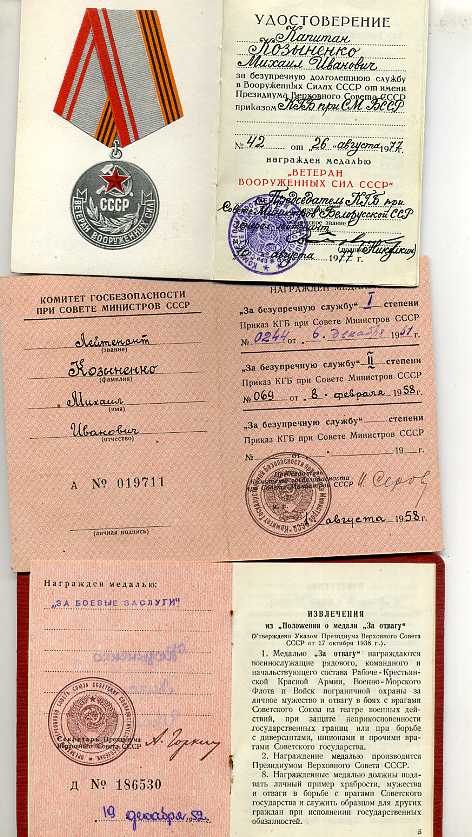 СССР
ВЕТЕРАН ВООРУЖЕННЫХ СИЛ
УДОСТОВЕРЕНИЕ
Капитан
Козыненко
Михаил Иванович
за безупречную долголетнюю службу
в Вооруженных Силах СССР от имени
Президиума Верховного Совета СССР
приказом КГБ при СМ БССР
№ 42 от "26" августа 1977 г.
награжден медалью
"ВЕТЕРАН
ВООРУЖЕННЫХ СИЛ СССР"
Председатель КГБ при
Совете Министров Белорусской ССР
звание
августа 1977 г.
КОМИТЕТ ГОСБЕЗОПАСНОСТИ
ПРИ СОВЕТЕ МИНИСТРОВ СССР
Лейтенант
(звание)
Козыненко
(фамилия)
Михаил
(имя)
Иванович
(отчество)
А № 019711
(личная подпись)
НАГРАЖДЕН
"За безупречную службу" I степени
Приказ КГБ при Совете Министров СССР
№ 0244 от "6" декабря 19 г.
"За безупречную службу" II степени
Приказ КГБ при Совете Министров СССР
№ 069 от "8" февраля 1958 г.
"За безупречную службу" степени
Приказ КГБ при Совете Министров СССР
№ от 19 г.
Председатель
Комитета госбезопасности
при Совете Министров СССР И. Серов
августа 1958 г.
Награжден медалью:
"ЗА БОЕВЫЕ ЗАСЛУГИ"
Секретарь Президиума
Верховного Совета СССР А. Горкин
Д № 186530
19 декабря
ИЗВЛЕЧЕНИЯ
из „Положения о медали „За отвагу"
(Утверждено Указом Президиума Верховного Совета
СССР от 17 октября 1938 г.).
1. Медалью „За отвагу" награждаются
военнослужащие рядового, командного и
начальствующего состава Рабоче-Крестьян-
ской Красной Армии, Военно-Морского
Флота и Войск пограничной охраны за
личное мужество и отвагу в боях с врагами
Советского Союза на театре военных дейст-
вий, при защите неприкосновенности
государственных границ или при борьбе
с диверсантами, шпионами и прочими вра-
гами Советского государства.
2. Награждение медалью производится
Президиумом Верховного Совета СССР.
8. Награжденные медалью должны пода-
вать личный пример храбрости, мужества
и отваги в борьбе с врагами Советского
государства и служить образцом для других
граждан при исполнении государственных
обязанностей.
5